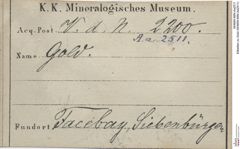 K. K. Mineralogisches Museum.
Acq.-Post. V. d. N. 2200.
A.a. 2511.
Name: Gold.
Fundort Facebay, Siebenbürgen